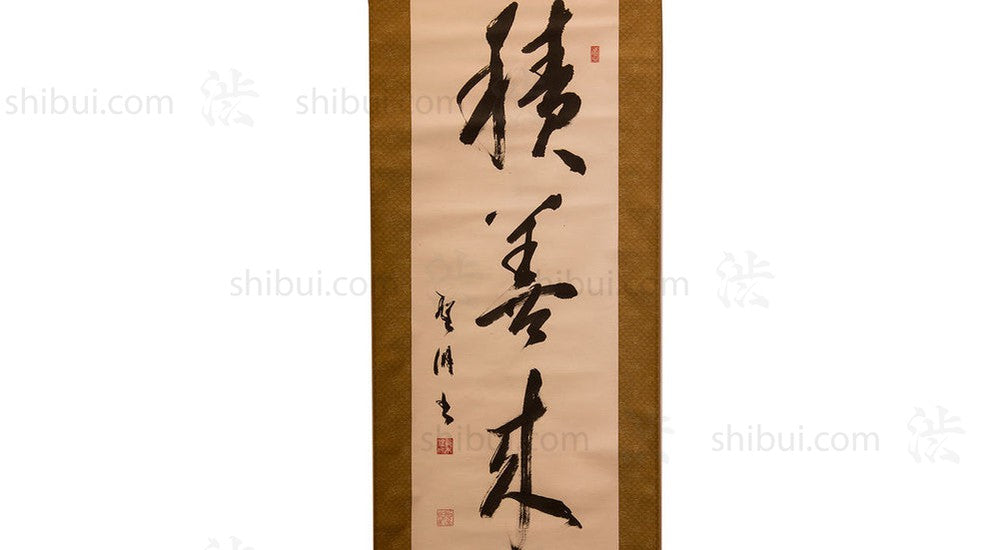 積
善
来
shibui.com 渋 shibui.com
shibui.com 渋 shibui.com 渋
shibui.com 渋 shibui.com 渋